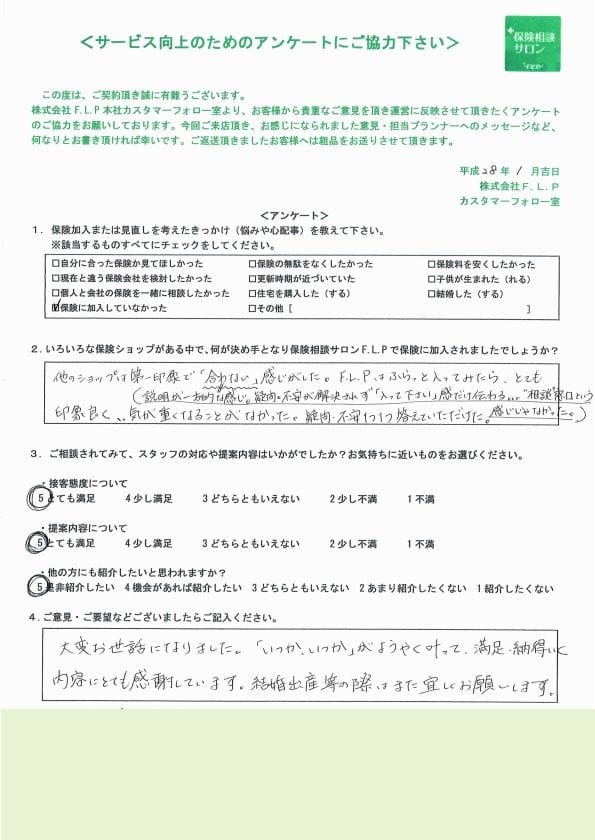 ＜サービス向上のためのアンケートにご協力下さい＞
保険相談
サロン
F.L.P
この度は、ご契約頂き誠に有難うございます。
株式会社F.L.P本社カスタマーフォロー室より、お客様から貴重なご意見を頂き運営に反映させて頂きたくアンケート
のご協力をお願いしております。今回ご来店頂き、お感じになられました意見・担当プランナーへのメッセージなど、
何なりとお書き頂ければ幸いです。ご返送頂きましたお客様へは粗品をお送りさせて頂きます。
平成28年1月吉日
株式会社F.L.P
カスタマーフォロー室
＜アンケート＞
1．保険加入または見直しを考えたきっかけ（悩みや心配事）を教えて下さい。
※該当するものすべてにチェックをしてください。
□自分に合った保険か見てほしかった □保険の無駄をなくしたかった □保険料を安くしたかった
□現在と違う保険会社を検討したかった □更新時期が近づいていた □子供が生まれた（れる）
□個人と会社の保険を一緒に相談したかった □住宅を購入した（する） □結婚した（する）
☑保険に加入していなかった □その他［ ］
2．いろいろな保険ショップがある中で、何が決め手となり保険相談サロンF.L.Pで保険に加入されましたでしょうか？
他のショップは第一印象で「合わない」感じがした。F.L.P.はふらっと入ってみたら、とても
（説明が一方的な感じ。疑問・不安が解決されず「入って下さい」感だけ伝わる…。"相談"窓口という
感じじゃなかった。）
印象良く、気が重くなることがなかった。疑問・不安1つ1つ答えていただけた。
3．ご相談されてみて、スタッフの対応や提案内容はいかがでしたか？お気持ちに近いものをお選びください。
・接客態度について
5とても満足 4少し満足 3どちらともいえない 2少し不満 1不満
・提案内容について
5とても満足 4少し満足 3どちらともいえない 2少し不満 1不満
・他の方にも紹介したいと思われますか？
5是非紹介したい 4機会があれば紹介したい 3どちらともいえない 2あまり紹介したくない 1紹介したくない
4．ご意見・ご要望などございましたらご記入ください。
大変お世話になりました。「いつか、いつか」がようやく叶って、満足・納得いく
内容にとても感謝しています。結婚出産等の際はまた宜しくお願いします。